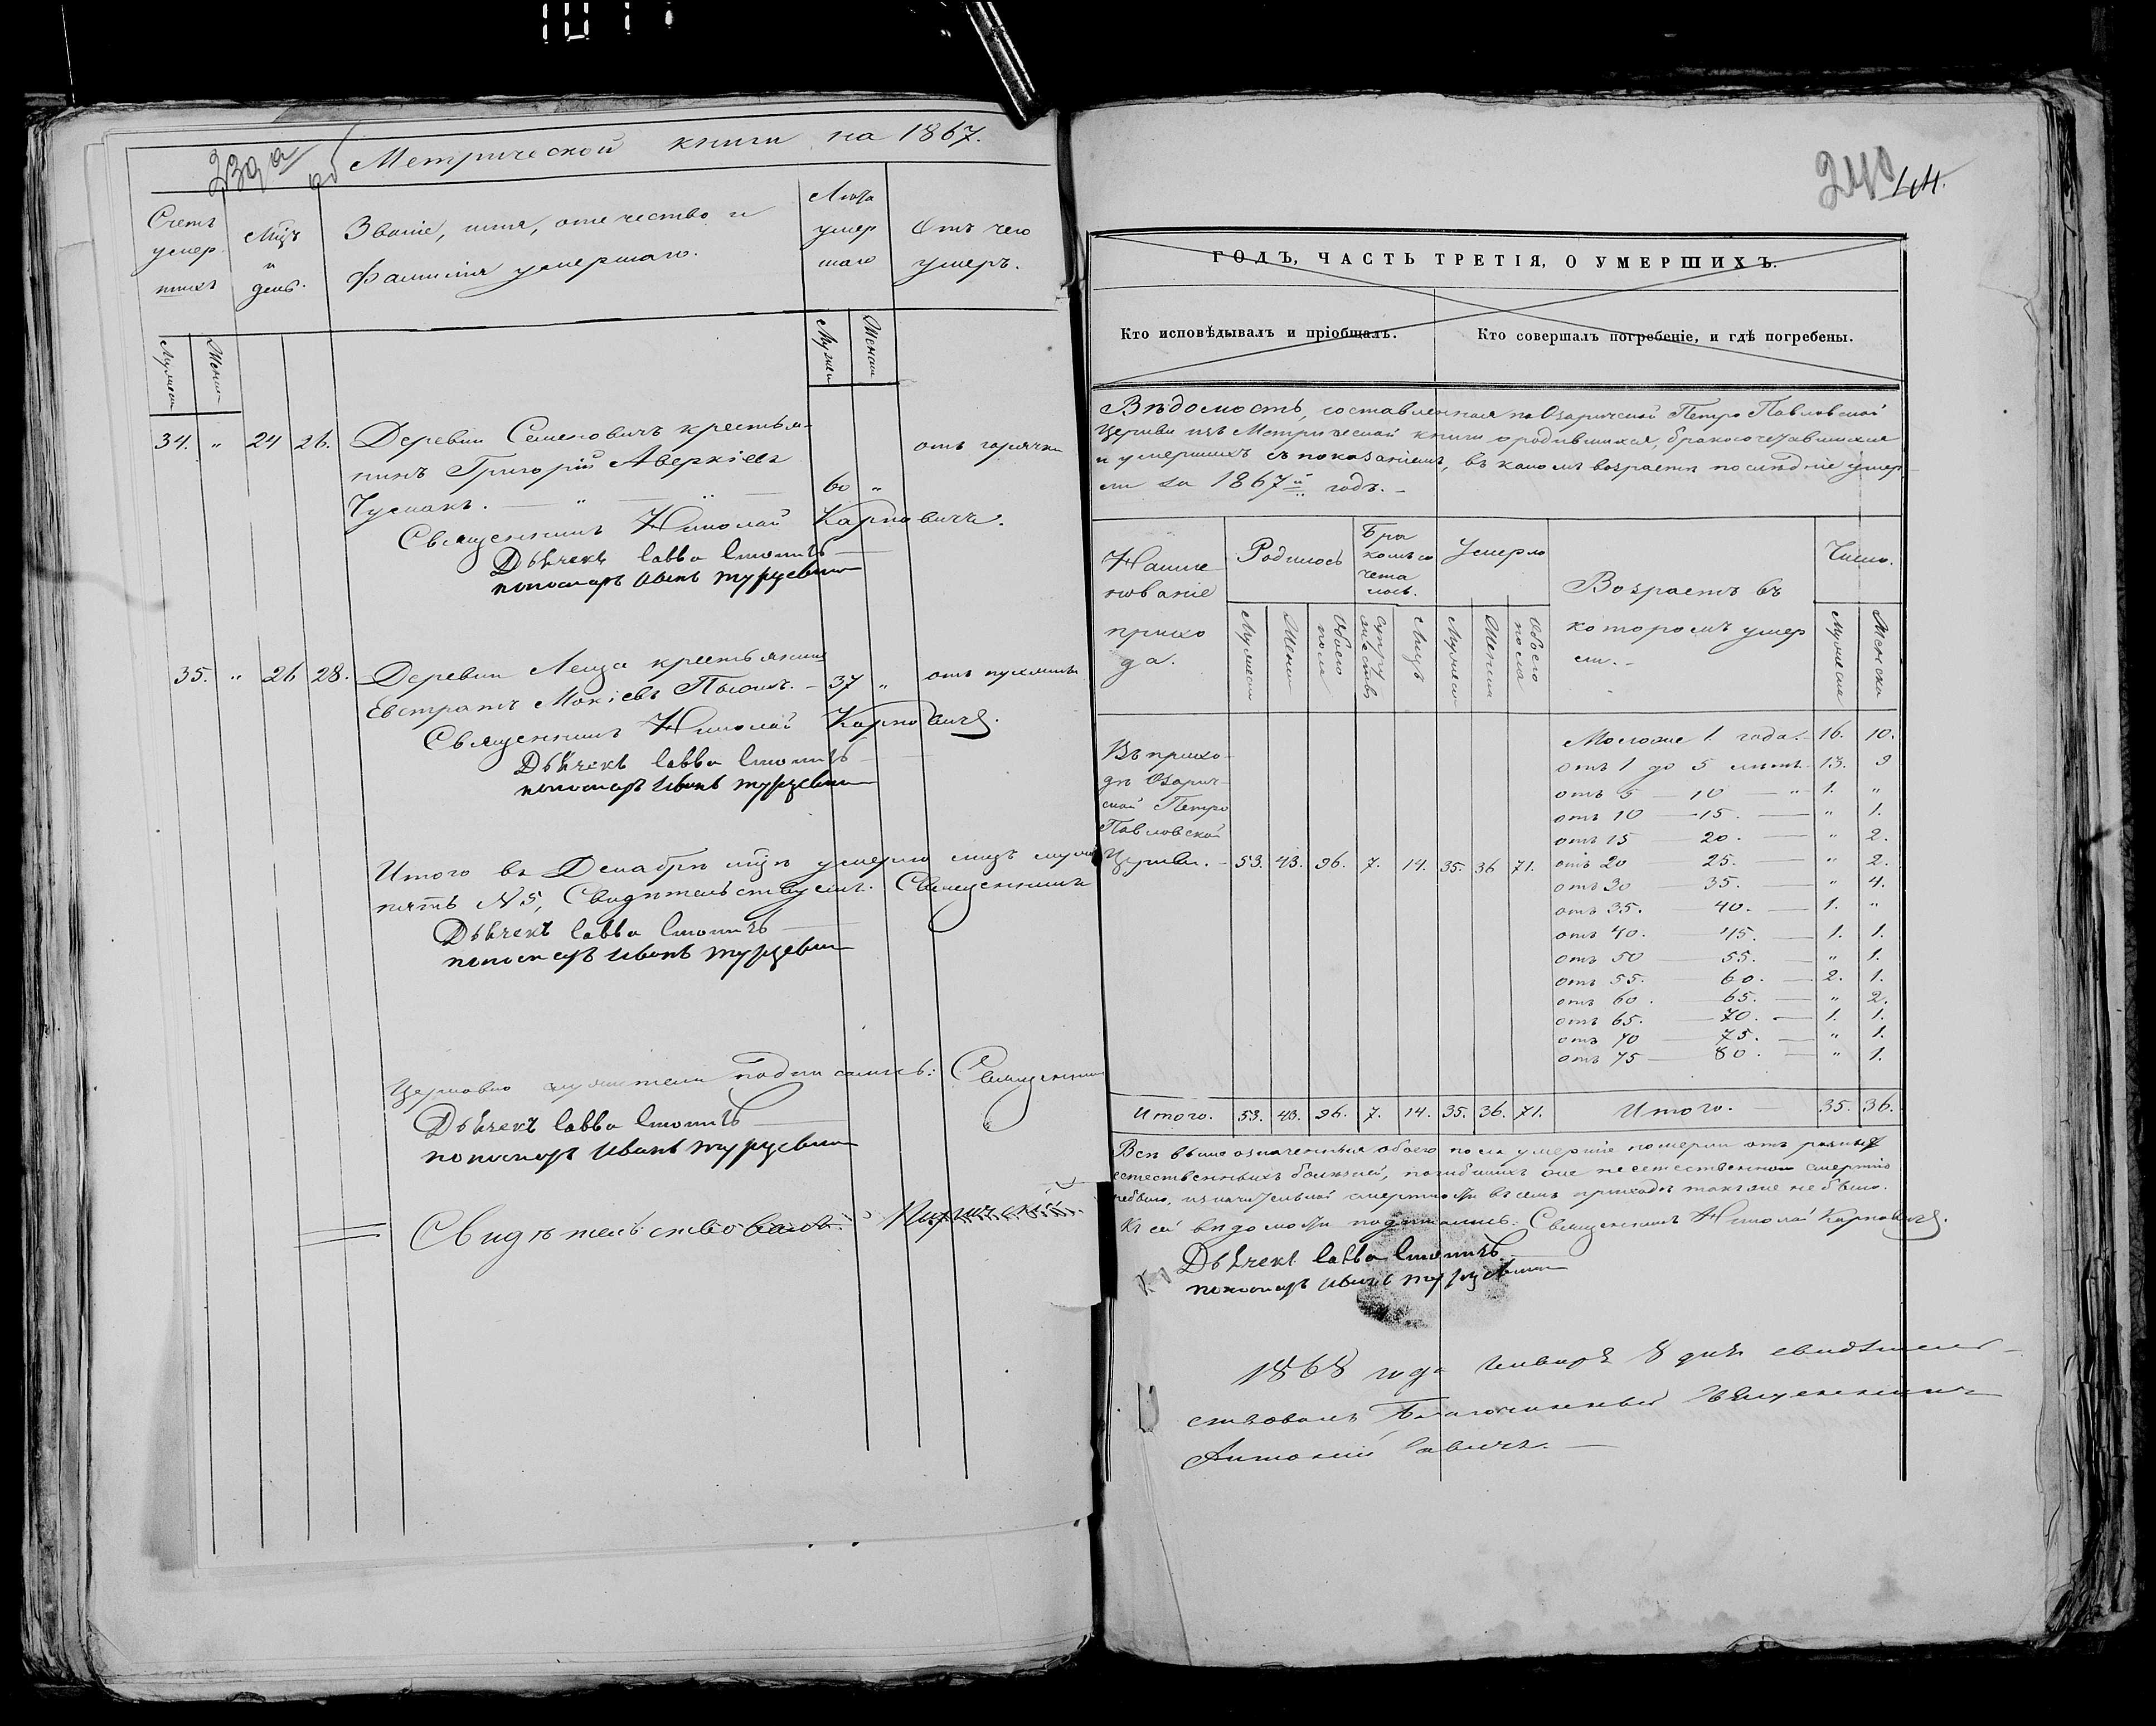 Метрической книги на 1867.
239 а
об
Счетъ умер шихъ
Мцъ и день.
Званіе, имя, отечество и
фамилія умершаго.
Лета умер шаго
Отъ чего умеръ.
Мужеск
Женск
Мужеск
Женск
34. " 24 26. Деревни Семеновичъ крестья-
нинъ Григорій Аверкіевъ отъ горячки
Чусмакъ. — " — 60 "
Священникъ Николай Карповичъ.
Дьячекъ Савва
пономаръ Иванъ Турцевич
35. " 26 28. Деревни крестьянинъ
Евстратъ Мокіевъ — 37 " отъ
Священникъ Николай Карповичъ.
Дьячекъ Савва
пономаръ Иванъ Турцевич
Итого въ Декабрѣ мцѣ умерло лицъ муж
пять № 5, Свидѣтельствуемъ: Священникъ
Дьячекъ Савва
пономаръ Иванъ Турцевич
Церковно служители подписались: Священник
Дьячекъ Савва
пономаръ Иванъ Турцевич
Свидѣтельствовалъ:
240
14.
ГОДЪ, ЧАСТЬ ТРЕТІЯ, О УМЕРШИХЪ.
Кто исповѣдывалъ и пріобщалъ.
Кто совершалъ погребеніе, и гдѣ погребены.
Вѣдомость, составленная по Озаричской Петро Павловской
Церкви изъ Метрической книги о родившихся, бракосочетавшихся
и умершихъ съ показаніемъ, въ какомъ возрастѣ послѣдніе умер
ли за 1867й годъ. —
Наиме нованіе прихо да.
Родилось
Бра комъ со чета лось.
Умерло
Возрастъ въ
которомъ умер
ли. —
Число.
Мужеск
Женск
Обоего пола
Супру жествъ
Лицъ
Мужеск
Женск
Обоего пола
Мужеск
Женска
Въ прихо
дѣ Озарич
ской Петро
Павловской
Церкви. — 53. 43. 96. 7. 14. 35. 36 71.
Моложе 1. года. — 16. 10.
отъ 1 до 5 лѣтъ — 13. 9
отъ 5 — 10 — " 1. "
отъ 10 — 15. — " 1.
отъ 15 20. — " 2.
отъ 20 25. — " 2.
отъ 30 35. — " 4.
отъ 35. — 40. — 1. "
отъ 40. — 45. — 1. 1.
отъ 50 — 55. — " 1.
отъ 55. — 60. — 2. 1.
отъ 60. — 65. — " 2.
отъ 65. — 70. — 1. 1.
отъ 70 — 75. — " 1.
отъ 75 — 80. — " 1.
Итого. 53. 43. 96. 7. 14. 35. 36. 71. Итого. — 35. 36.
Всѣ вышеозначенныя обоего пола умершіе померли отъ разныхъ
естественныхъ болѣзней, погибшихъ же неестественною смертію
небыло, и значительной смертности въ семъ приходѣ также не было.
Къ сей вѣдомости подписались: Священникъ Николай Карповичъ.
Дьячекъ Савва
пономаръ Иванъ Турцевич
1868 года Января 8 дня свидѣтель-
ствовалъ Благочинный Священникъ
Антоній Савичъ. —